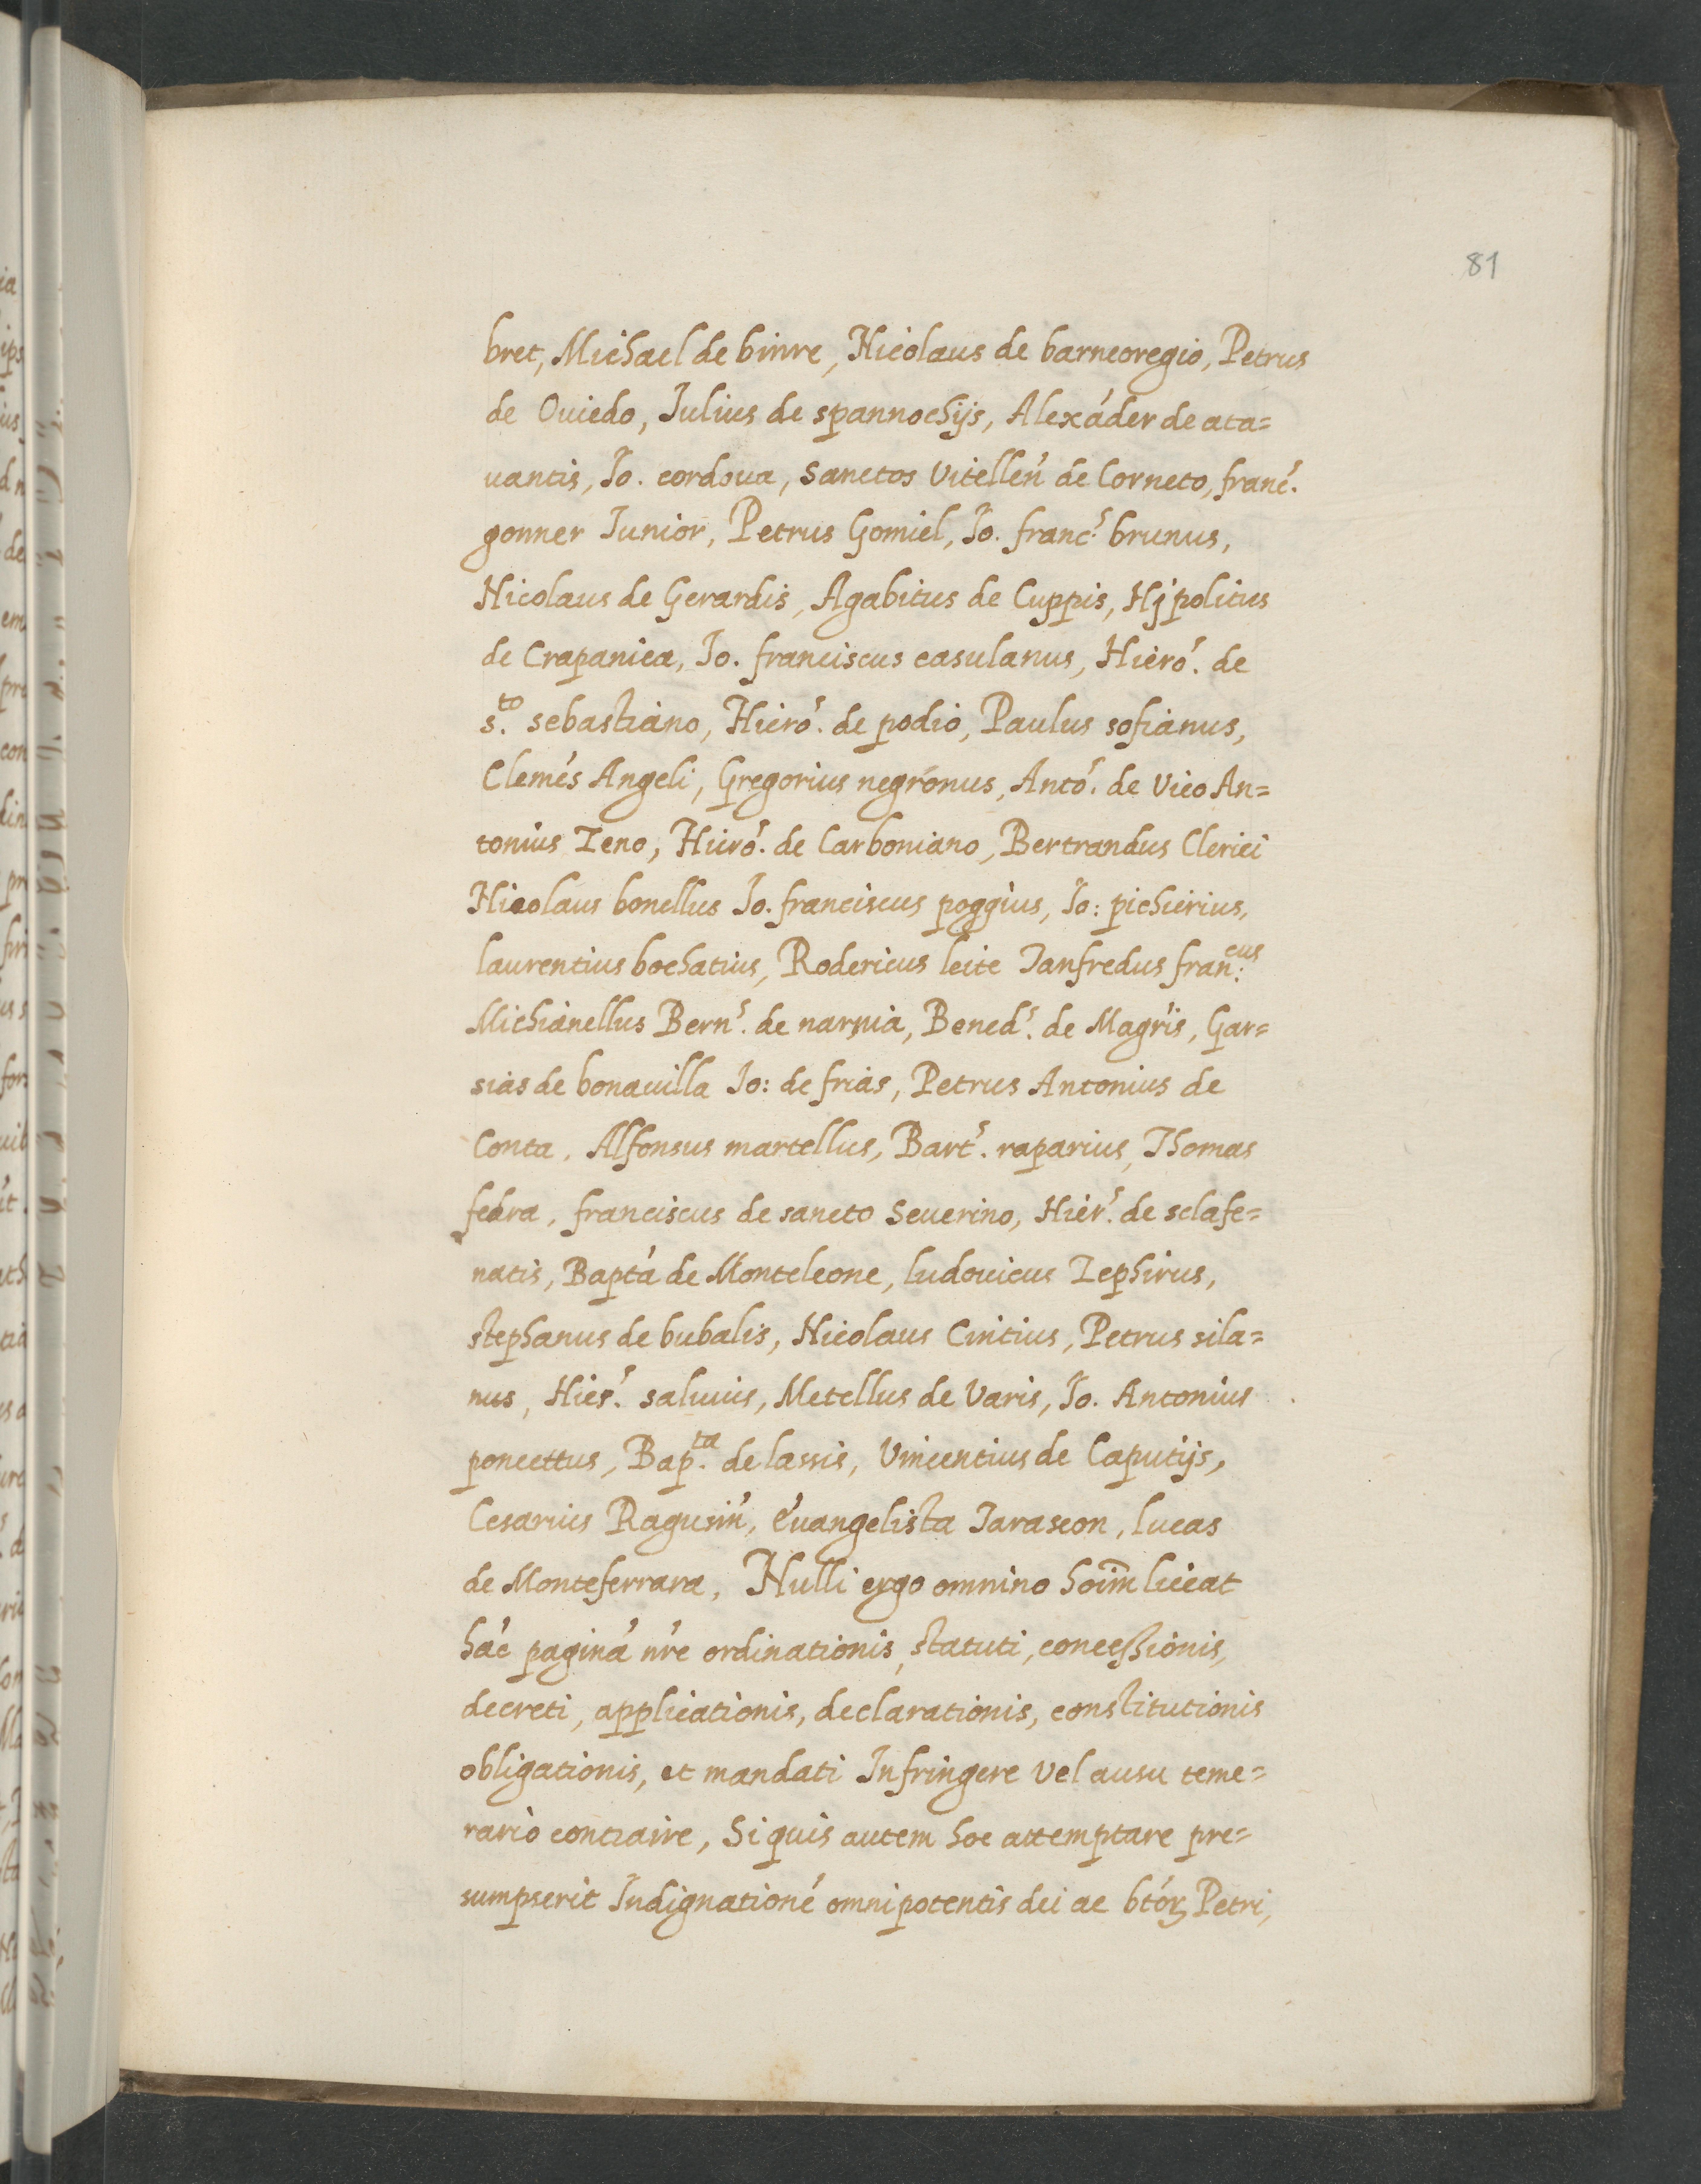 81
bret, Michael de binre, Nicolaus de barneoregio, Petrus
de Ouiedo, Julius de spannochijs, Alexáder de ata=
uantis, Jo. cordoua, Sanctos Vitelleń de Corneto, franć.
gonner Junior, Petrus Gomiel, Jo. franc.s brunus,
Nicolaus de Gerardis, Agabitus de Cuppis, Hjpolitus
de Crapanica, Jo. franciscus casulanus, Hieró. de
s.to sebastiano, Hieró. de podio, Paulus sofianus,
Clemés Angeli, Gregorius negronus, Antó. de Vico An=
tonius Zeno, Hieró. de Carboniano, Bertrandus Clerici
Nicolaus bonellus Jo. franciscus poggius, Jo: pichierius,
laurentius bochatius, Rodericus leite Janfredus fran:cus
Michianellus Bern.s de narnia, Bened.s de Magŕis, Gar=
sias de bonauilla Jo: de frias, Petrus Antonius de
Conta, Alfonsus martellus, Bart.s raparius, Thomas
fedra, franciscus de sancto Seuerino, Hier.s de sclafe=
natis, Baptá de Monteleone, ludouicus Zephirus,
stephanus de bubalis, Nicolaus Cintius, Petrus sila=
nus, Hier.s saluius, Metellus de Varis, Jo. Antonius
poncettus, Bap.ta de lassis, Vincentius de Caputijs,
Cesarius Ragusiń, éuangelista Tarascon, lucas
de Monteferrara, Nulli ergo omnino hoīm liceat
hác paginá nŕe ordinationis, statuti, concessionis,
decreti, applicationis, declarationis, constitutionis
obligationis, et mandati Infringere Vel ausu teme=
rario contraire, Si quis autem hoc attemptare pre=
sumpserit Indignationé omnipotentis dei ac btóꝝ Petri,